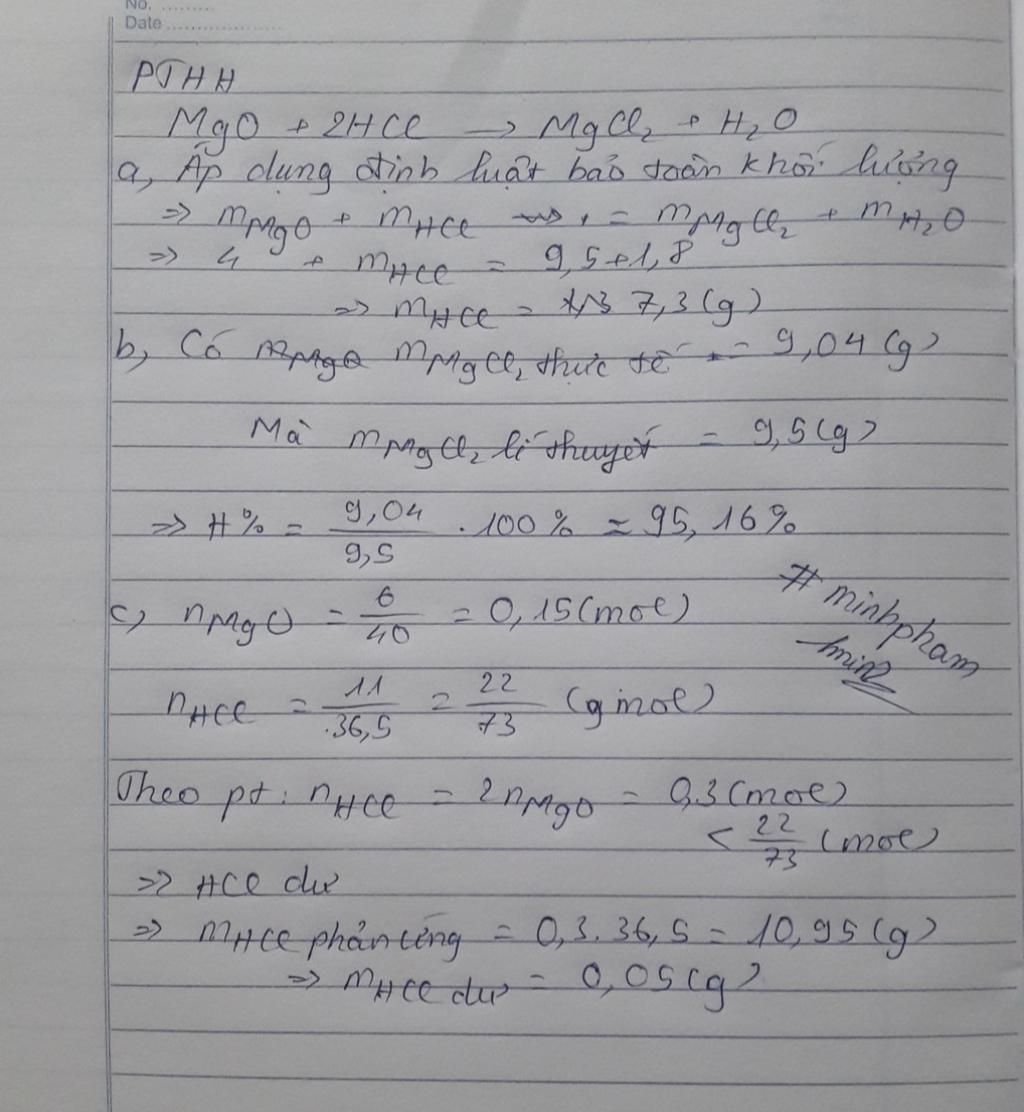 No. .........
Date ..................
PTHH
MgO + 2HCl -> MgCl₂ + H₂O
a, Áp dụng định luật bảo toàn khối lượng
=> mMgO + mHCl = mMgCl₂ + mH₂O
=> 4 + mHCl = 9,5+1,8
=> mHCl = 7,3 (g)
b, Có mMgCl₂ thực tế = 9,04 (g)
Mà mMgCl₂ lí thuyết = 9,5 (g)
=> H% = 9,04/9,5 . 100% ≈ 95,16%
c, nMgO = 6/40 = 0,15 (mol)
# minhpham
minz
nHCl = 11/36,5 = 22/73 (mol)
Theo pt: nHCl = 2nMgO = 0,3 (mol)
< 22/73 (mol)
=> HCl dư
=> mHCl phản ứng = 0,3.36,5 = 10,95 (g)
=> mHCl dư = 0,05 (g)